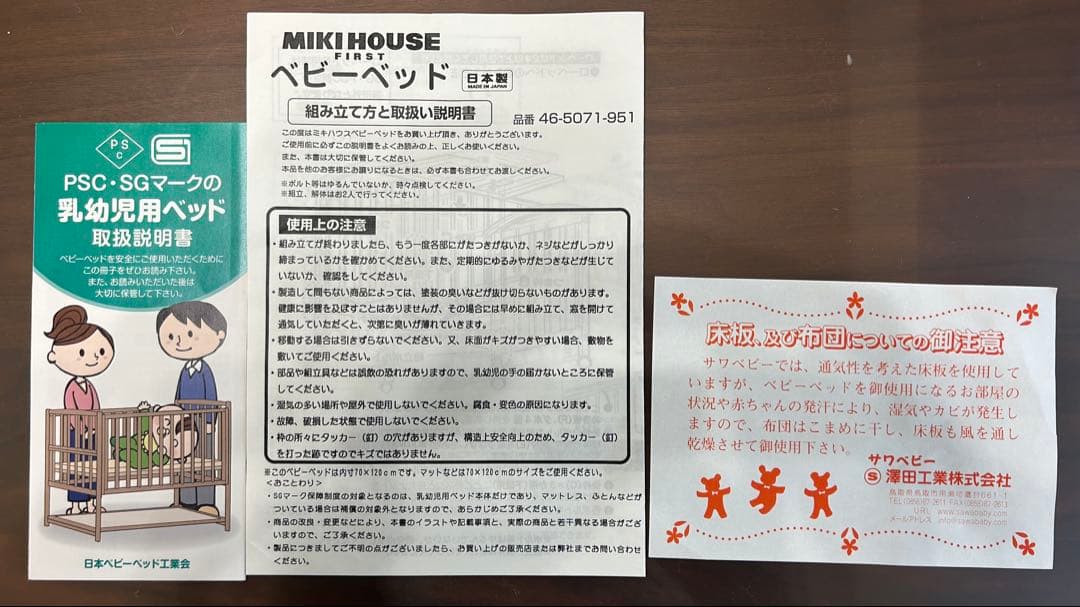 PSC
PSC・SGマークの
乳幼児用ベッド
取扱説明書
ベビーベッドを安全にご使用いただくために
この冊子をぜひお読み下さい。
また、お読みいただいた後は
大切に保管して下さい。
日本ベビーベッド工業会
MIKIHOUSE
FIRST
ベビーベッド
日本製
MADE IN JAPAN
組み立て方と取扱い説明書
品番 46-5071-951
この度はミキハウスベビーベッドをお買い上げ頂き、ありがとうございます。
ご使用前に必ずこの説明書をよくお読みの上、正しくお使いください。
また、本書は大切に保管してください。
本品を他のお客様にお譲りになるときは、必ず本書も合わせてお渡しください。
※ボルト等はゆるんでいないか、時々点検してください。
※組立、解体はお2人で行ってください。
使用上の注意
・組み立てが終わりましたら、もう一度各部にがたつきがないか、ネジなどがしっかり
締まっているかを確かめてください。また、定期的にゆるみやがたつきなどが生じて
いないか、確認をしてください。
・製造して間もない商品によっては、塗装の臭いなどが抜け切らないものがあります。
健康に影響を及ぼすことはありませんが、その場合には早めに組み立て、窓を開けて
通気していただくと、次第に臭いが薄れていきます。
・移動する場合は引きずらないでください。又、床面がキズがつきやすい場合、敷物を
敷いてご使用ください。
・部品や組立具などは誤飲の恐れがありますので、乳幼児の手の届かないところに保管
してください。
・湿気の多い場所や屋外で使用しないでください。腐食・変色の原因になります。
・故障、破損した状態で使用しないでください。
・枠の所々にタッカー（釘）の穴がありますが、構造上安全向上のため、タッカー（釘）
を打った跡ですのでキズではありません。
※このベビーベッドは内寸70×120cmです。マットなどは70×120cmのサイズをご使用ください。
<おことわり>
・SGマーク保障制度の対象となるのは、乳幼児用ベッド本体だけであり、マットレス、ふとんなどが
ついている場合は補償の対象外となりますので、あらかじめご了承ください。
・商品の改良・変更などにより、本書のイラストや記載事項と、実際の商品と若干異なる場合がござ
いますので、ご了承ください。
・製品につきましてご不明の点がございましたら、お買い上げの販売店または弊社までお問い合わせ
ください。
床板、及び布団についての御注意
サワベビーでは、通気性を考えた床板を使用して
いますが、ベビーベッドを御使用になるお部屋の
状況や赤ちゃんの発汗により、湿気やカビが発生し
ますので、布団はこまめに干し、床板も風を通し
乾燥させて御使用下さい。
サワベビー
S 澤田工業株式会社
鳥取県鳥取市用瀬町鷹狩661-1
TEL(0858)87-2611 FAX(0858)87-2613
URL www.sawababy.com
メールアドレス info@sawababy.com